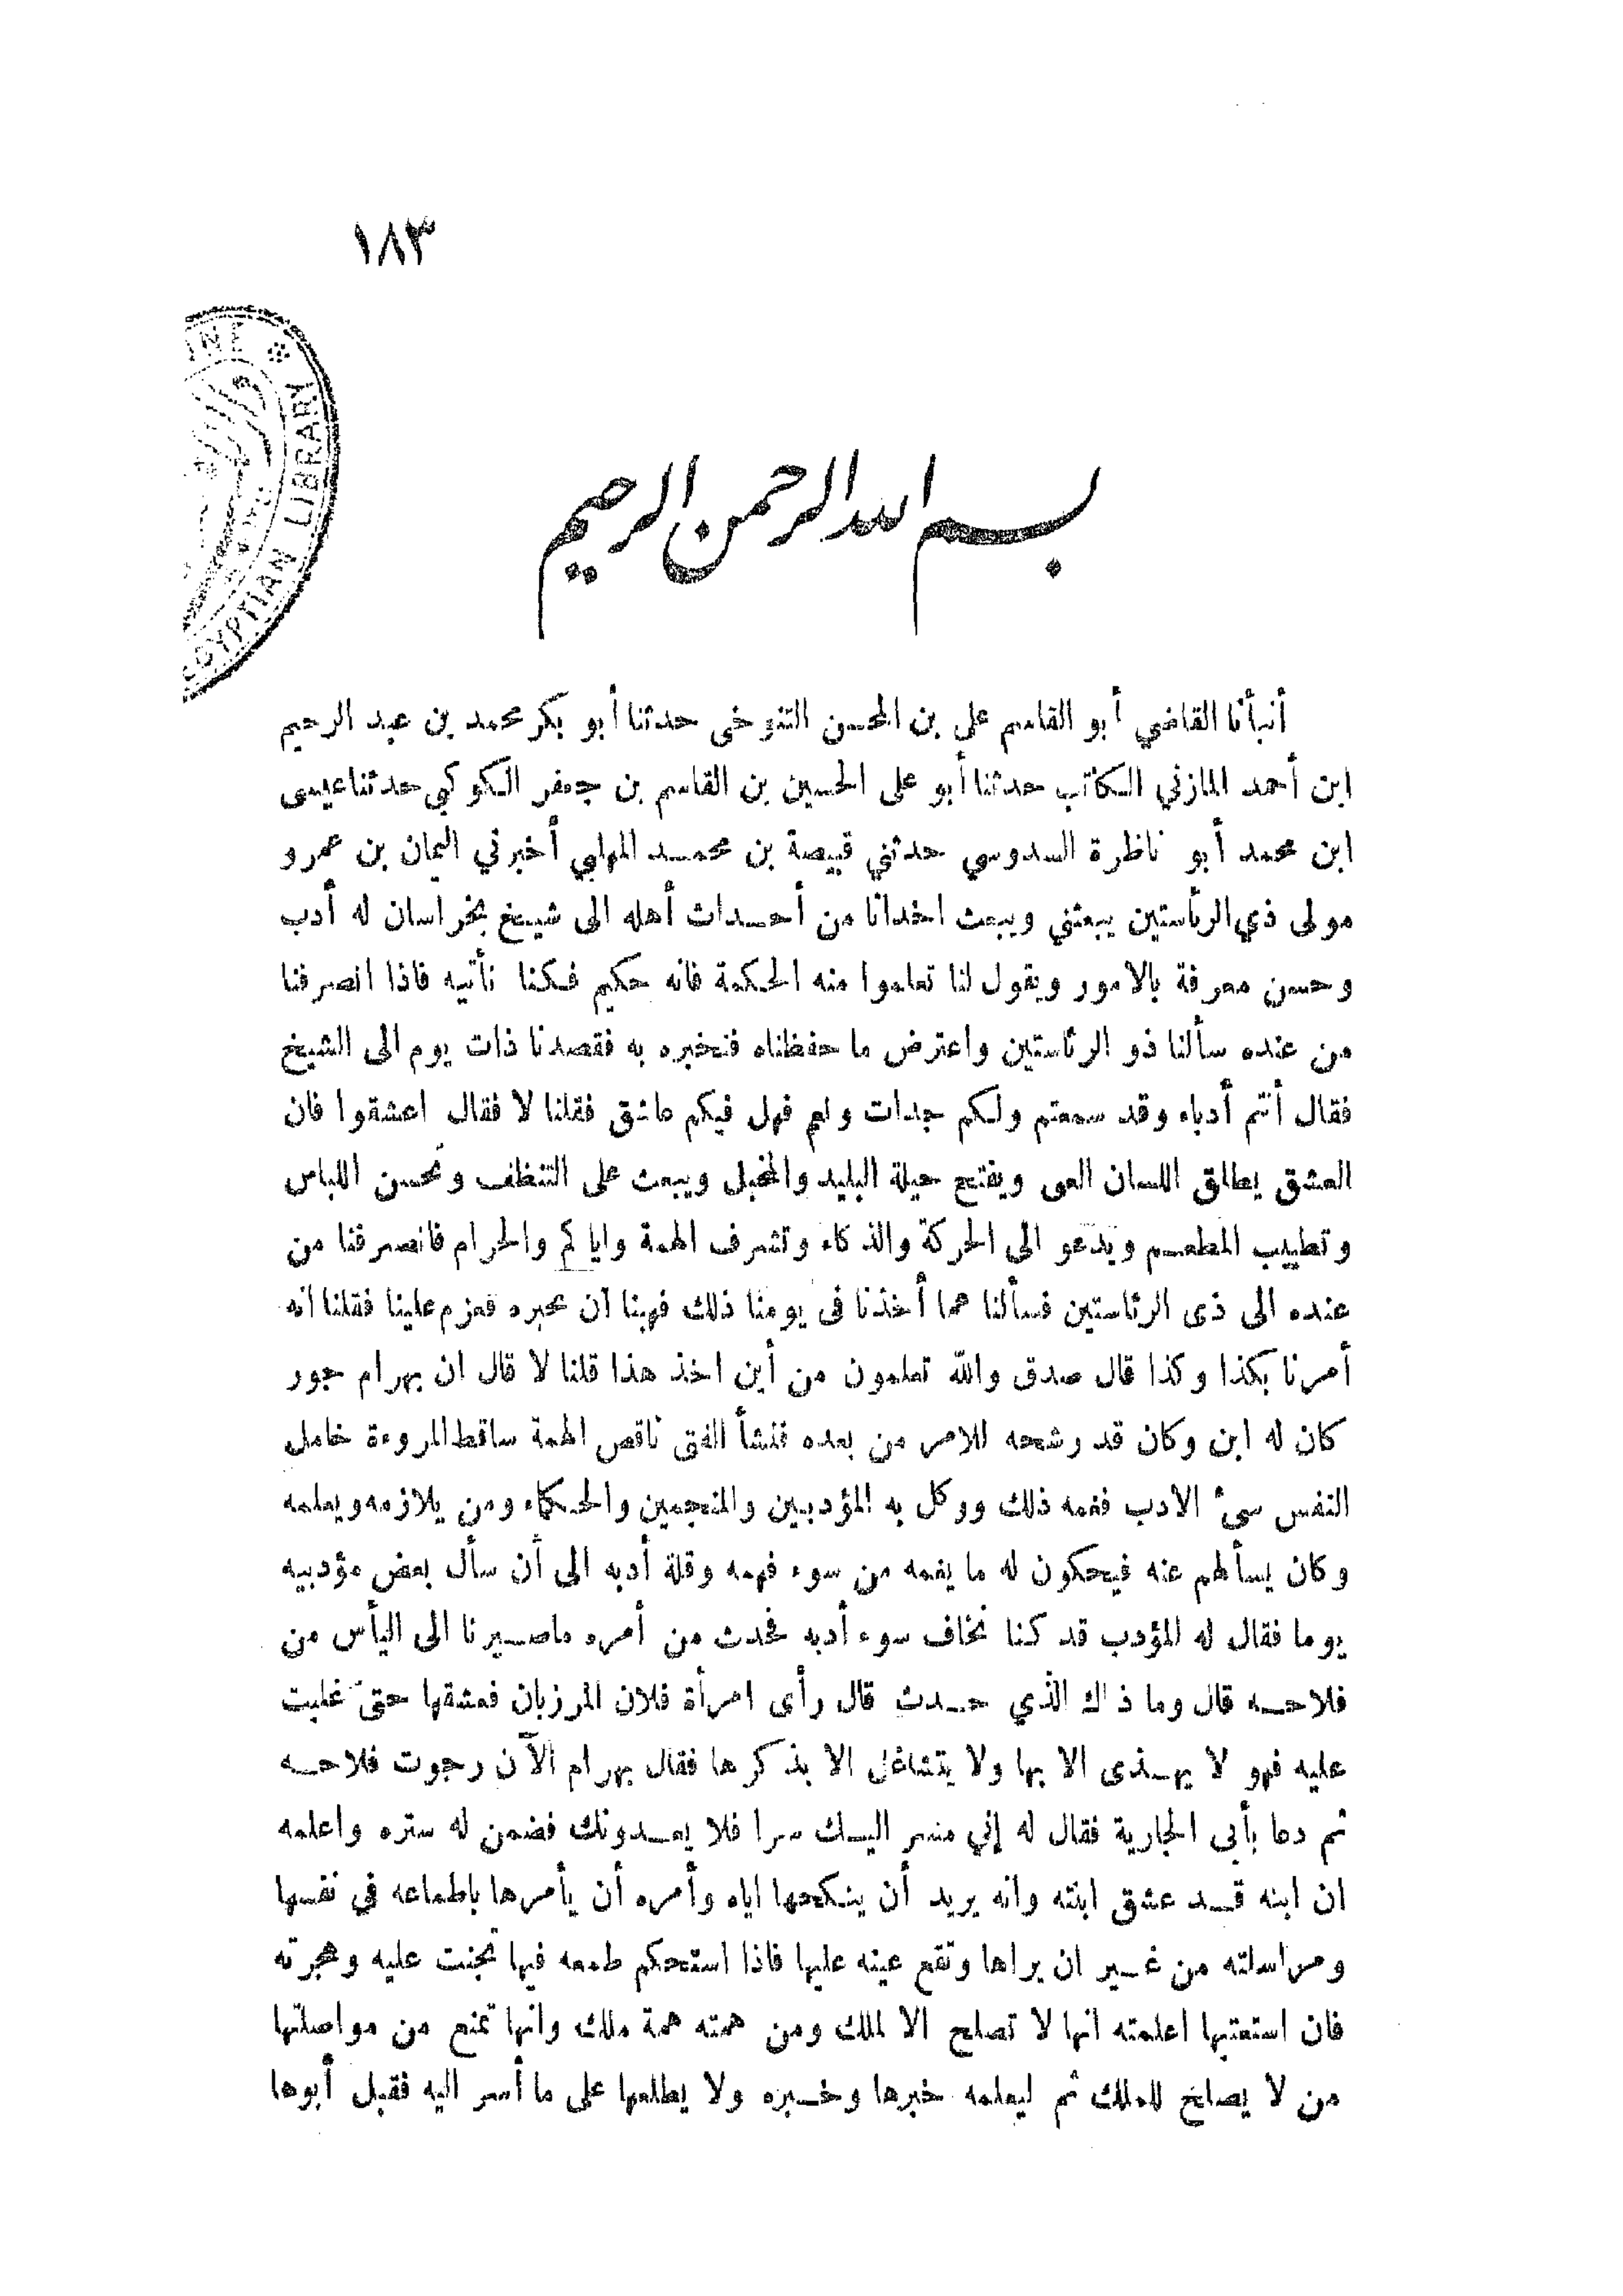 ١٨٣
INE
EGYPTIAN LIBRARY
بسم الله الرحمن الرحيم
أنبأنا القاضي أبو القاسم على بن المحسن التنوخى حدثنا أبو بكر محمد بن عبد الرحيم
ابن أحمد المازني الكاتب حدثنا أبو على الحسين بن القاسم بن جعفر الكوكبي حدثنا عيسى
ابن محمد أبو ناظرة السدوسي حدثني قبيصة بن محمد المهلبي أخبرني اليمان بن عمرو
مولى ذي الرئاستين يبعثني ويبعث احداثا من أحداث أهله الى شيخ بخراسان له أدب
وحسن معرفة بالامور ويقول لنا تعلموا منه الحكمة فانه حكيم فكنا نأتيه فاذا انصرفنا
من عنده سألنا ذو الرئاستين واعترض ما حفظناه فنخبره به فقصدنا ذات يوم الى الشيخ
فقال أنتم أدباء وقد سمعتم ولكم جدات ونعم فهل فيكم عاشق فقلنا لا فقال اعشقوا فان
العشق يطلق اللسان العى ويفتح حيلة البليد والمخبل ويبعث على التنظف وتحسن اللباس
وتطييب المطعم ويدعو الى الحركة والذكاء وتشرف الهمة واياكم والحرام فانصرفنا من
عنده الى ذى الرئاستين فسألنا عما أخذنا فى يومنا ذلك فهبنا أن نخبره فعزم علينا فقلنا انه
أمرنا بكذا وكذا قال صدق والله تعلمون من أين اخذ هذا قلنا لا قال ان بهرام جور
كان له ابن وكان قد رشحه للامر من بعده فنشأ الفتى ناقص الهمة ساقط المروءة خامل
النفس سئ الادب فغمه ذلك ووكل به المؤدبين والمنجمين والحكماء ومن يلازمه ويعلمه
وكان يسألهم عنه فيحكون له ما يغمه من سوء فهمه وقلة أدبه الى أن سأل بعض مؤدبيه
يوما فقال له المؤدب قد كنا نخاف سوء أدبه فحدث من أمره ماصيرنا الى اليأس من
فلاحه قال وما ذاك الذي حدث قال رأى امرأة فلان المرزبان فعشقها حتى غلبت
عليه فهو لا يهذى الا بها ولا يتشاغل الا بذكرها فقال بهرام الآن رجوت فلاحه
ثم دعا بأبى الجارية فقال له إني مسر اليك سرا فلا يعدونك فضمن له ستره واعلمه
ان ابنه قد عشق ابنته وانه يريد أن ينكحها اياه وأمره أن يأمرها باطماعه في نفسها
ومراسلته من غير ان يراها وتقع عينه عليها فاذا استحكم طمعه فيها تجنت عليه وهجرته
فان استعتبها اعلمته انها لا تصلح الا لملك ومن همته همة ملك وانها تمنع من مواصلتها
من لا يصلح للملك ثم ليعلمه خبرها وخبره ولا يطلعها على ما أسر اليه فقبل أبوها